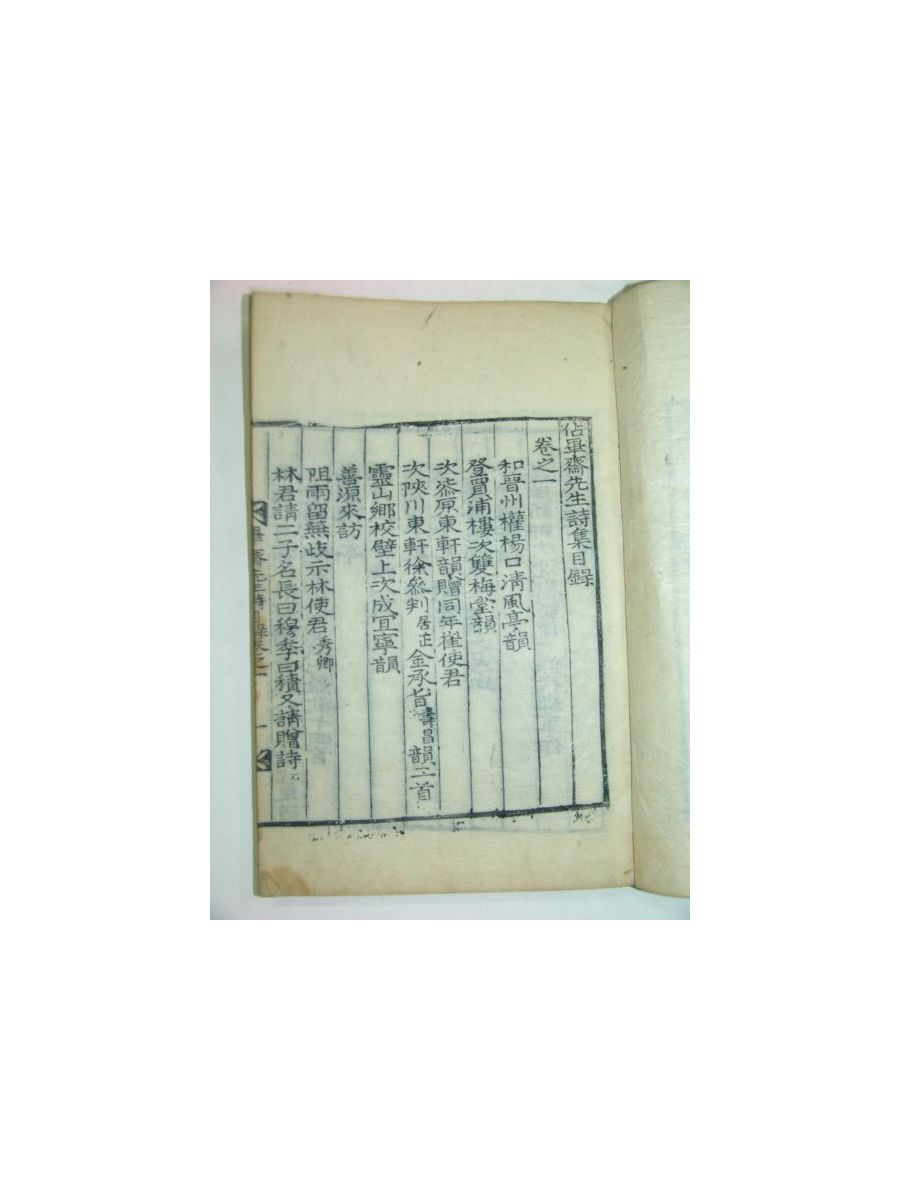 佔畢齋先生詩集目錄
卷之一
和晉州權楊口淸風亭韻
登買浦樓次雙梅堂韻
次桼原東軒韻贈同年崔使君
次陜川東軒徐叅判居正金承旨壽昌韻二首
靈山鄕校壁上次成冝寧韻
善源來訪
阻雨留無歧示林使君秀卿
林君請二子名長曰穆季曰積又請贈詩